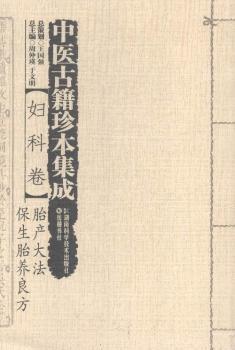 总策划◎王国强
总主编◎周仲瑛 于文明
中医古籍珍本集成
【妇科卷】
胎产大法
保生胎养良方
湖南科学技术出版社
岳麓书社